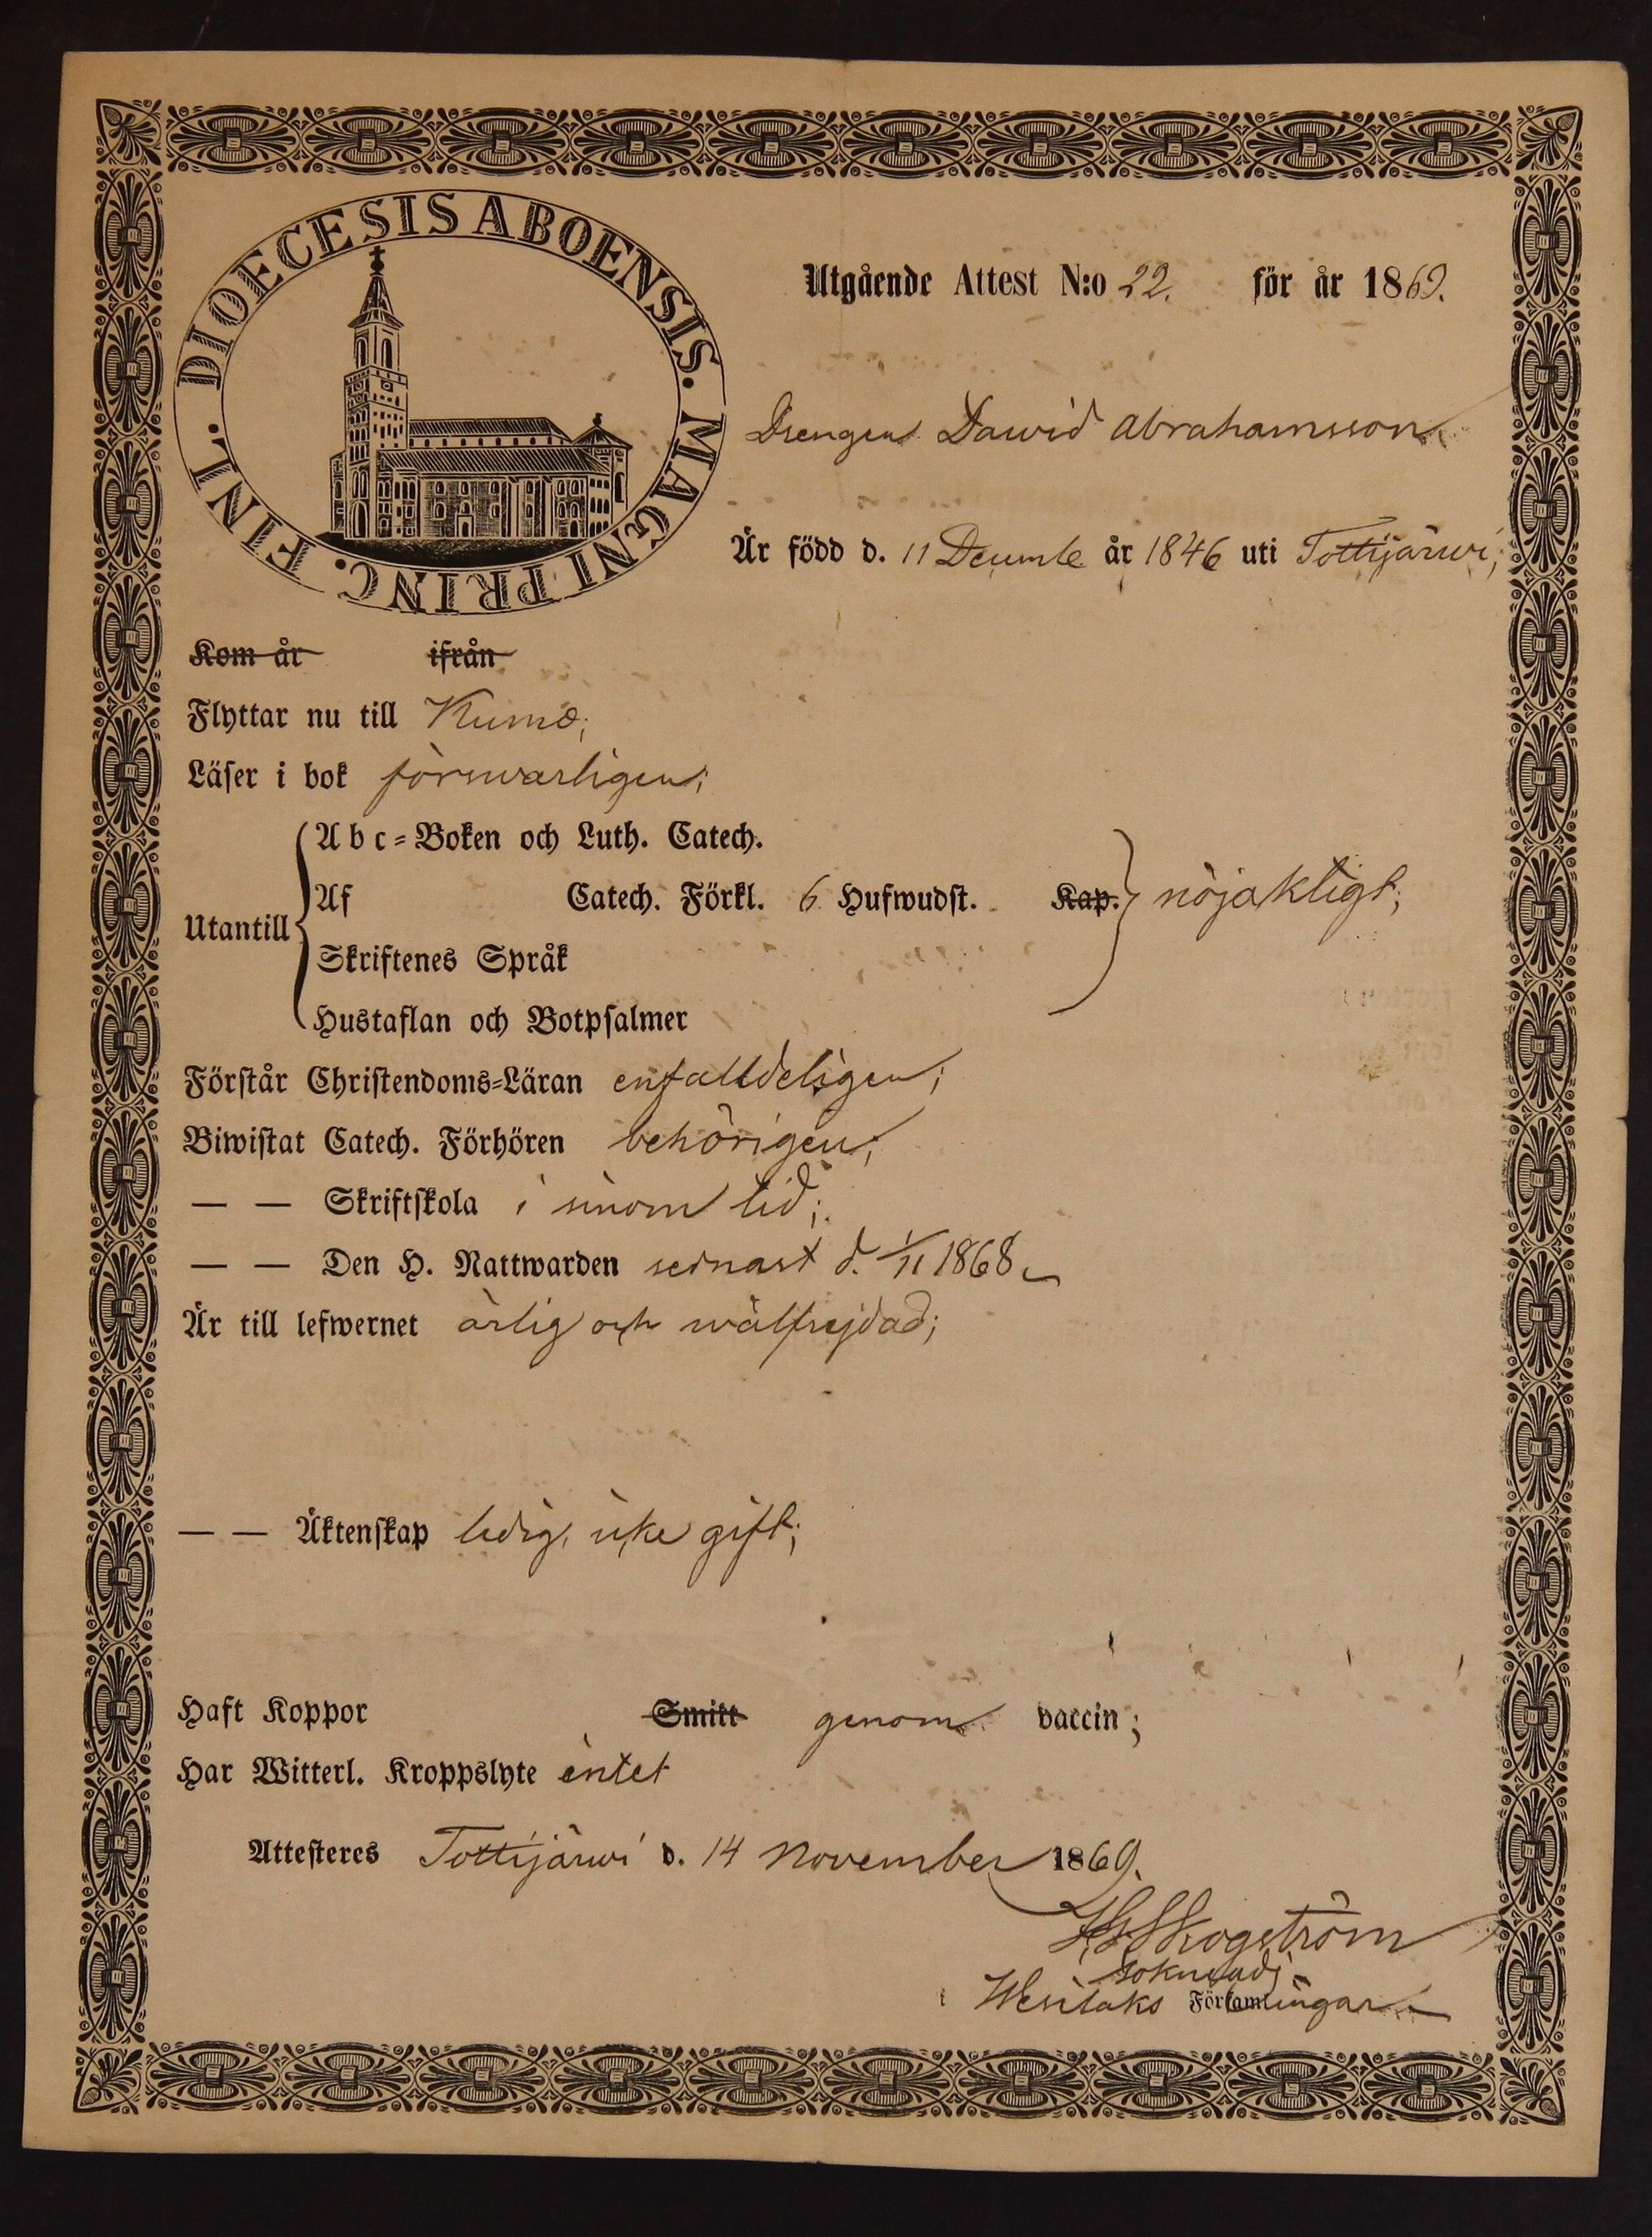 DIOECESIS ABOENSIS. MAGNI PRINC. FINL.
Utgående Attest N:o 22. för år 1869.
Drengen Dawid Abrahamsson
Är född d. 11 Decembe år 1846 uti Tottijärwi;
Kom år ifrån
Flyttar nu till Kumo;
Läser i bok förswarligen;
Utantill
Abc-Boken och Luth. Catech.
Af Catech. Förkl. 6 Hufwudst. Kap. nöjaktigt;
Skriftenes Språk
Hustaflan och Botpsalmer
Förstår Christendoms-Läran enfalldeligen;
Biwistat Catech. Förhören behörigen;
— — Skriftskola i sinom tid;
— — Den H. Nattwarden sednast d. 1/11 1868
Är till lefwernet ärlig och wälfrejdad;
— — Äktenskap ledig, icke gift;
Haft Koppor Smitt genom vaccin;
Har Witterl. Kroppslyte intet
Attesteres Tottijärwi d. 14 November 1869.
Skogström
Sokneadj.
i Wesilaks Församlingar